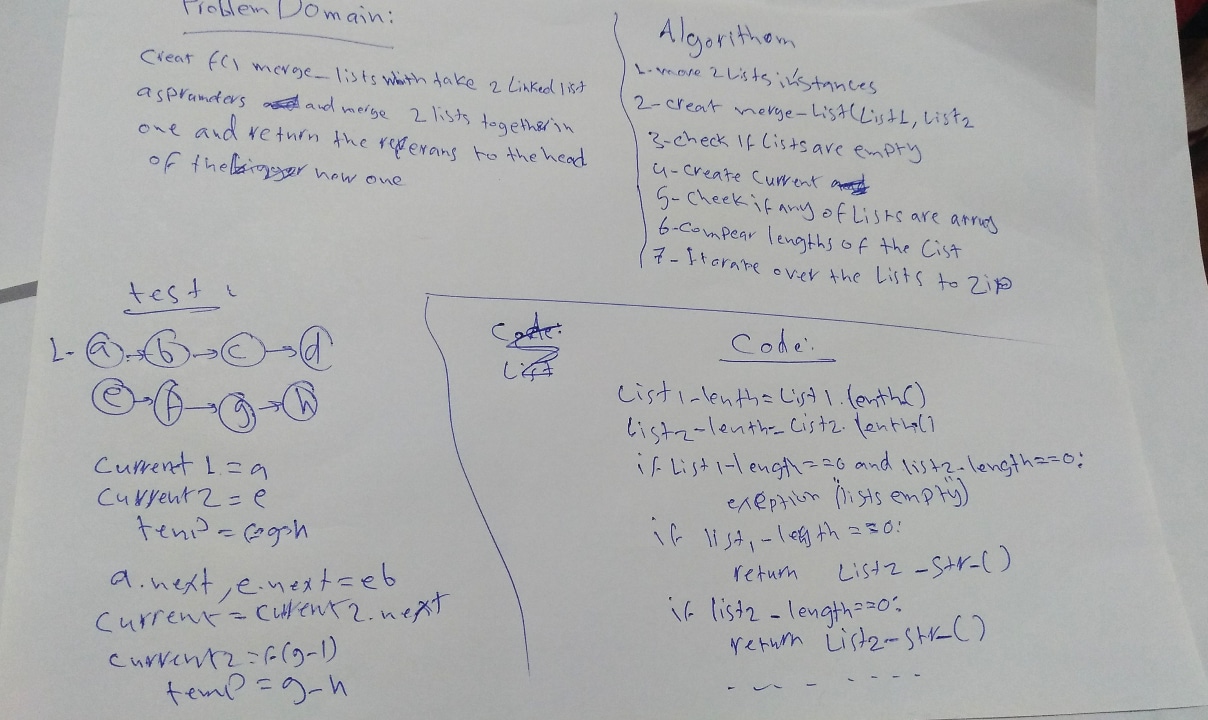 Problem Domain:
Creat fcn merge_lists with take 2 Linked list
as prameters and merge 2 lists together in
one and return the referans to the head
of the new one
Algorithom
1-move 2 Lists instances
2-creat merge-List(List1, List2
3-check If Lists are empty
4-create Current
5-Cheek if any of Lists are array
6-Compear lengths of the List
7-Itorate over the Lists to Zip
test:
1- a → b → c → d
e → f → g → h
Current 1 = a
Current2 = e
temp =
a.next, e.next = eb
Current = Current2.next
Current2 = f(g-1)
temp = g-h
Code:
List
Code:
List1-lenth = List1.lenth()
List2-lenth = List2.lenth()
if List1-length==0 and list2-length==0:
exeption "(lists empty")
if list1-legth ==0:
return List2-str-()
if list2-length==0:
return List2-str-()